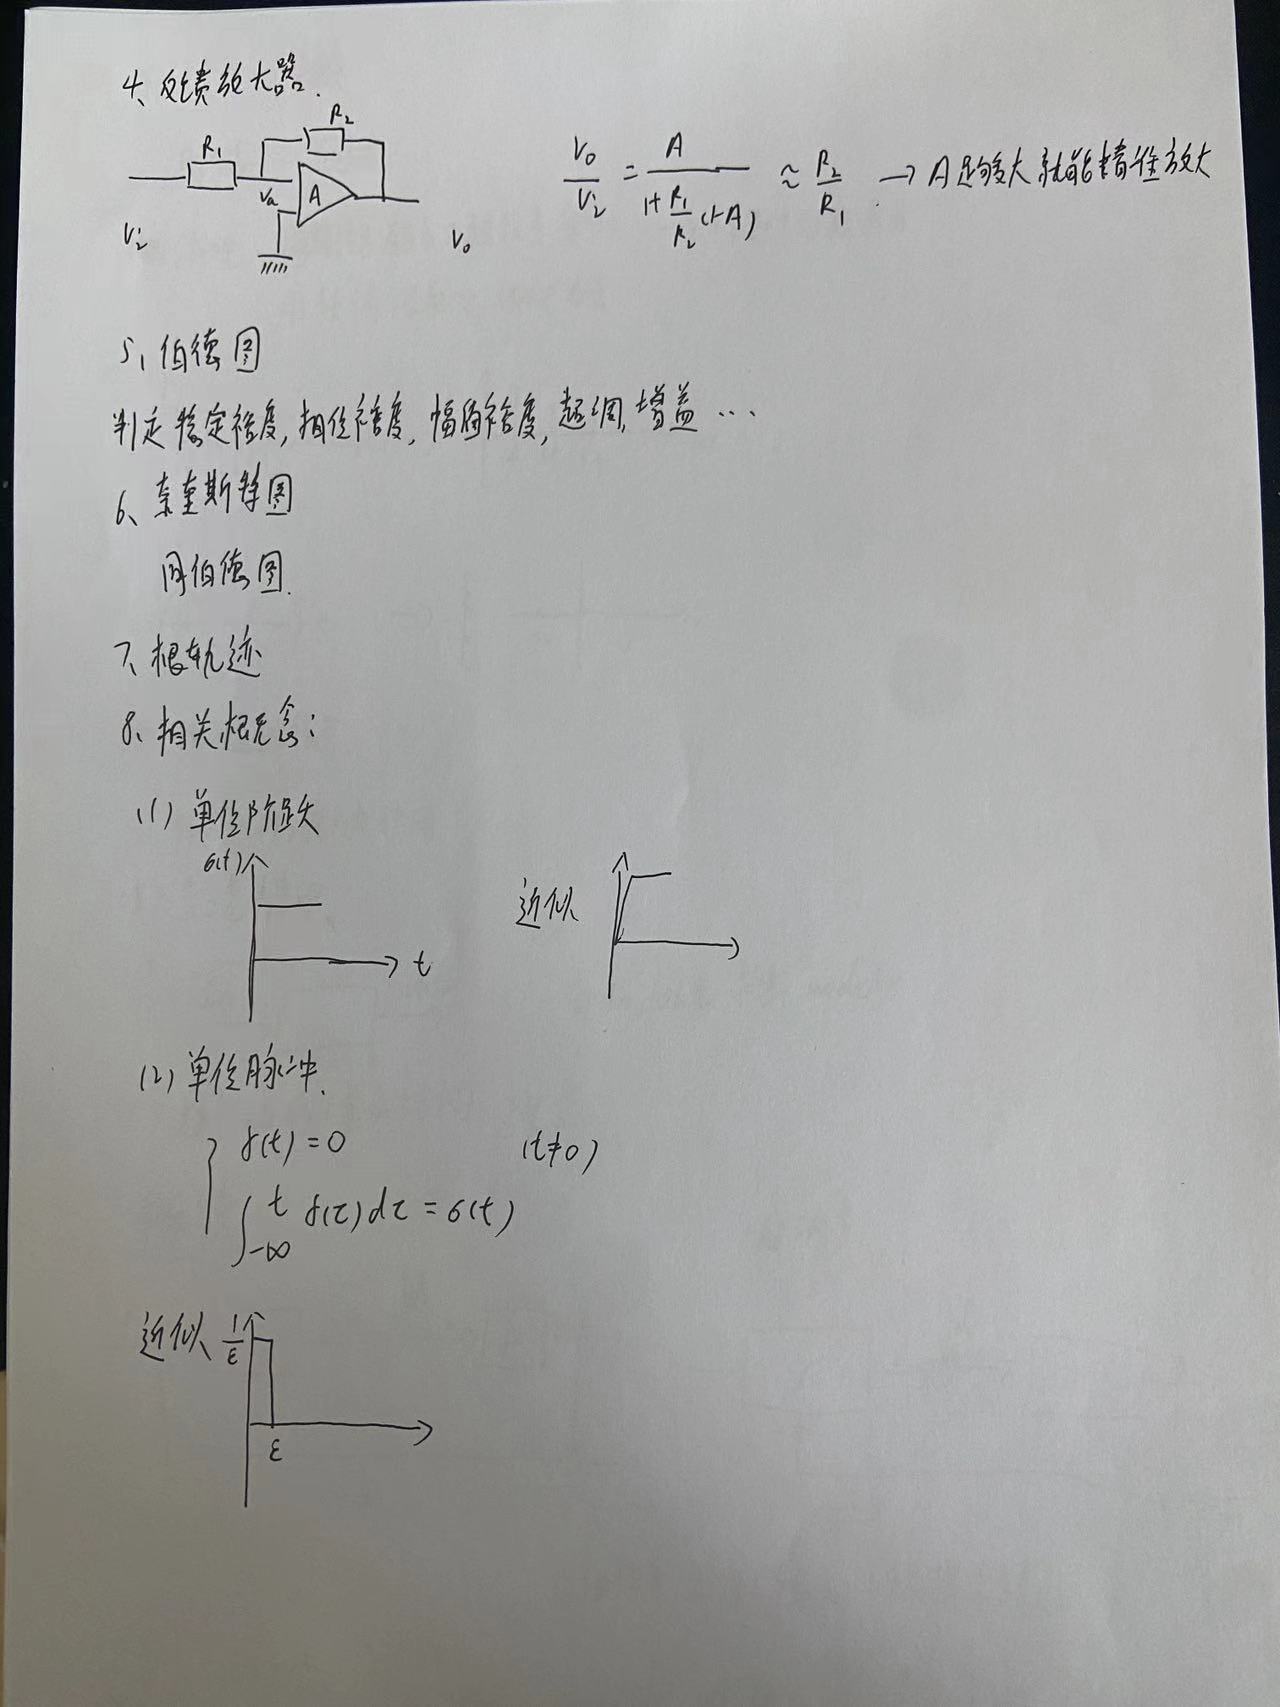 4、反馈放大器.
R₁ R₂ Vₐ A Vᵢ V₀
V₀/Vᵢ = A/(1+R₁/R₂(1-A)) ≈ R₂/R₁ . → A足够大就能精准放大
5、伯德图
判定稳定裕度, 相位裕度, 幅值裕度, 超调, 增益 …
6、奈奎斯特图
同伯德图.
7、根轨迹
8、相关概念:
(1) 单位阶跃
σ(t) t 近似
(2) 单位脉冲.
{ δ(t) = 0 (t≠0)
∫_{-∞}^{t} δ(τ)dτ = σ(t)
近似 1/ε
ε